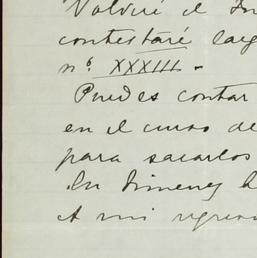 Volveré el
contestaré larg
nº XXXIII -
Puedes contar
en el curso de
para sacarlos
In Jimenez h
A mi regres